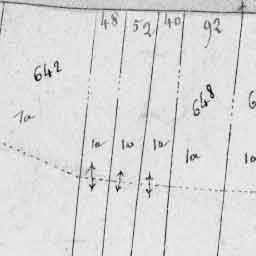 48 52 40 92
642
648
1a
1a 1a 1a 1a 1a